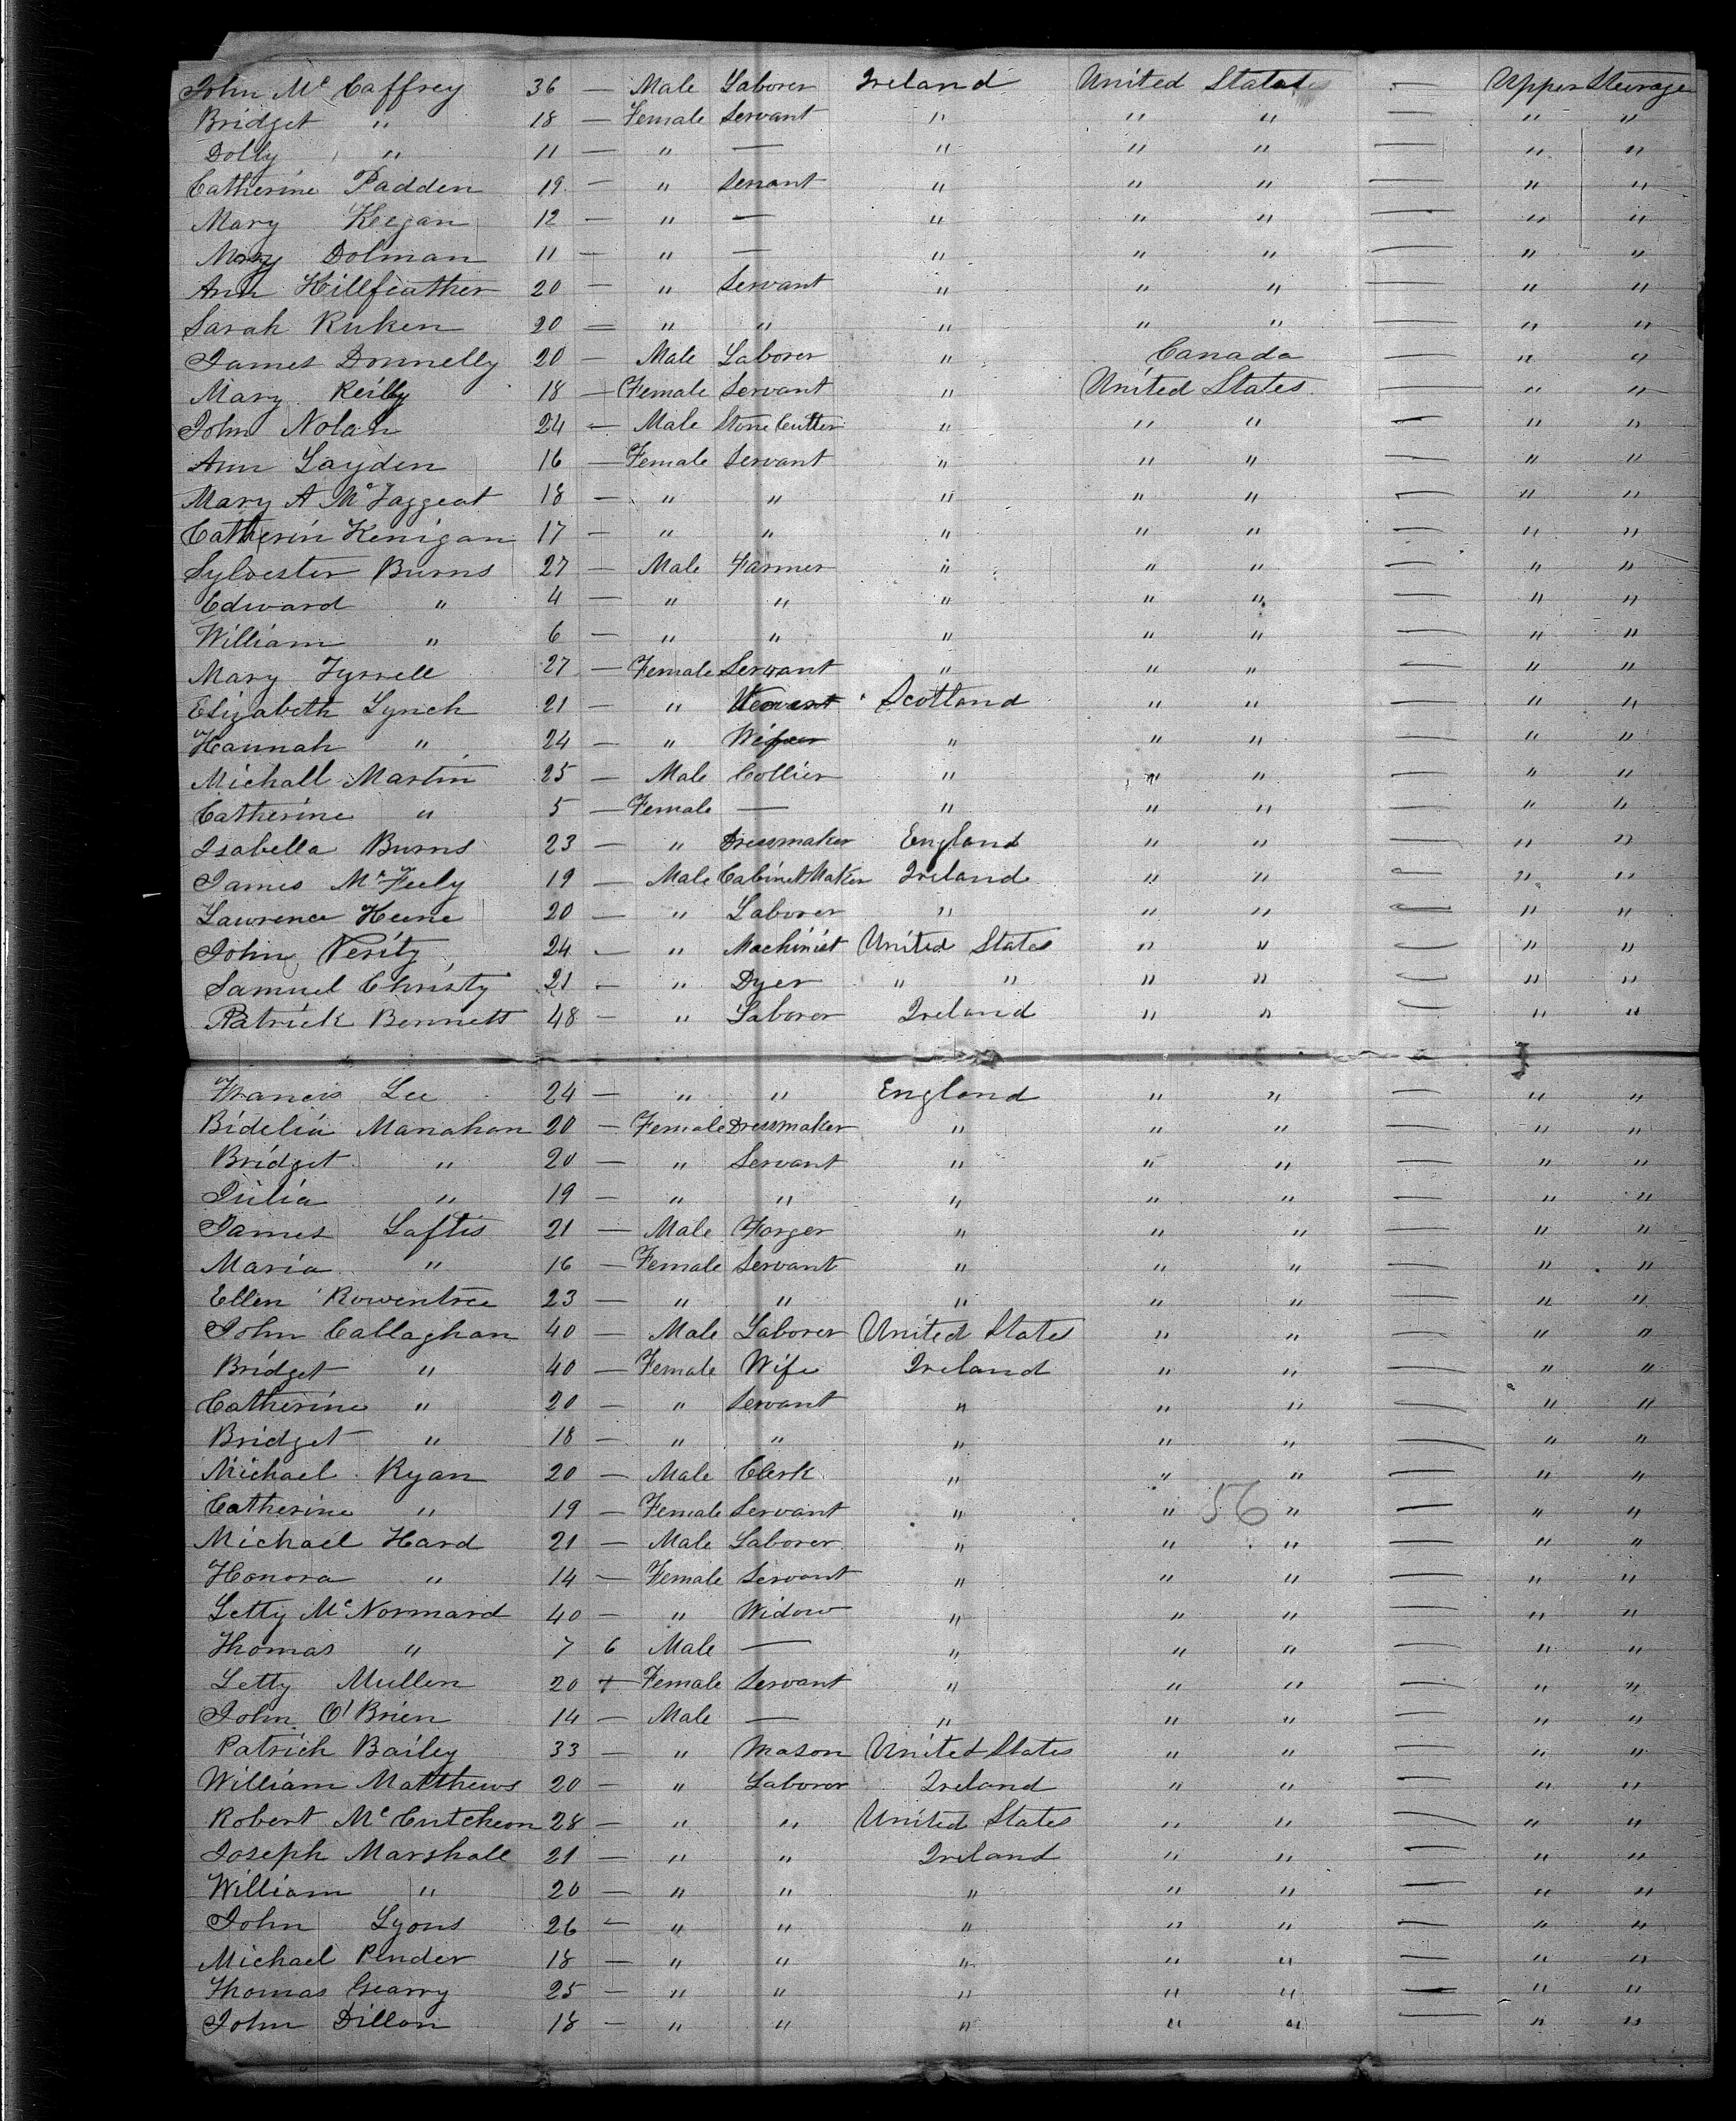 John Mc Caffrey 36 — Male Laborer Ireland United States — Upper Steerage
Bridget " 18 — Female Servant " " " — " "
Dolly " 11 — " — " " " — " "
Catherine Padden 19 — " Servant " " " — " "
Mary Keegan 12 — " — " " " — " "
Mary Dolman 11 — " — " " " — " "
Ann Killfeather 20 — " Servant " " " — " "
Sarah Ruken 20 — " " " " " — " "
James Donnelly 20 — Male Laborer " Canada — " "
Mary Reilly 18 — Female Servant " United States — " "
John Nolan 24 — Male Stone Cutter " " " — " "
Ann Layden 16 — Female Servant " " " — " "
Mary A McTaggeat 18 — " " " " " — " "
Catherin Kenigan 17 — " " " " " — " "
Sylvester Burns 27 — Male Farmer " " " — " "
Edward " 4 — " " " " " — " "
William " 6 — " " " " " — " "
Mary Tyrrell 27 — Female Servant " " " — " "
Elizabeth Lynch 21 — " Scotland " " — " "
Hannah " 24 — " " " " — " "
Michall Martin 25 — Male Collier " " " — " "
Catherine " 5 — Female — " " " — " "
Isabella Burns 23 — " Dressmaker England " " — " "
James McFeely 19 — Male Cabinet Maker Ireland " " — " "
Lawrence Heene 20 — " Laborer " " " — " "
John Verity 24 — " Machinist United States " " — " "
Samuel Christy 21 — " Dyer " " " " — " "
Patrick Bennett 48 — " Laborer Ireland " " — " "
Francis Lee 24 — " " England " " — " "
Bidelia Manahan 20 — Female Dressmaker " " " — " "
Bridget " 20 — " Servant " " " — " "
Julia " 19 — " " " " " — " "
James Loftis 21 — Male Forger " " " — " "
Maria " 16 — Female Servant " " " — " "
Ellen Rowentree 23 — " " " " " — " "
John Callaghan 40 — Male Laborer United States " " — " "
Bridget " 40 — Female Wife Ireland " " — " "
Catherine " 20 — " Servant " " " — " "
Bridget " 18 — " " " " " — " "
Michael Ryan 20 — Male Clerk " " " — " "
Catherine " 19 — Female Servant " " 56 " — " "
Michael Hard 21 — Male Laborer " " " — " "
Honora " 14 — Female Servant " " " — " "
Letty McNormard 40 — " Widow " " " — " "
Thomas " 7 6 Male — " " " — " "
Letty Mullen 20 + Female Servant " " " — " "
John O'Brien 14 — Male — " " " — " "
Patrick Bailey 33 — " Mason United States " " — " "
William Matthews 20 — " Laborer Ireland " " — " "
Robert McCutcheon 28 — " " United States " " — " "
Joseph Marshall 21 — " " Ireland " " — " "
William " 20 — " " " " " — " "
John Lyons 26 — " " " " " — " "
Michael Pender 18 — " " " " " — " "
Thomas Gearry 25 — " " " " " — " "
John Dillon 18 — " " " " " — " "